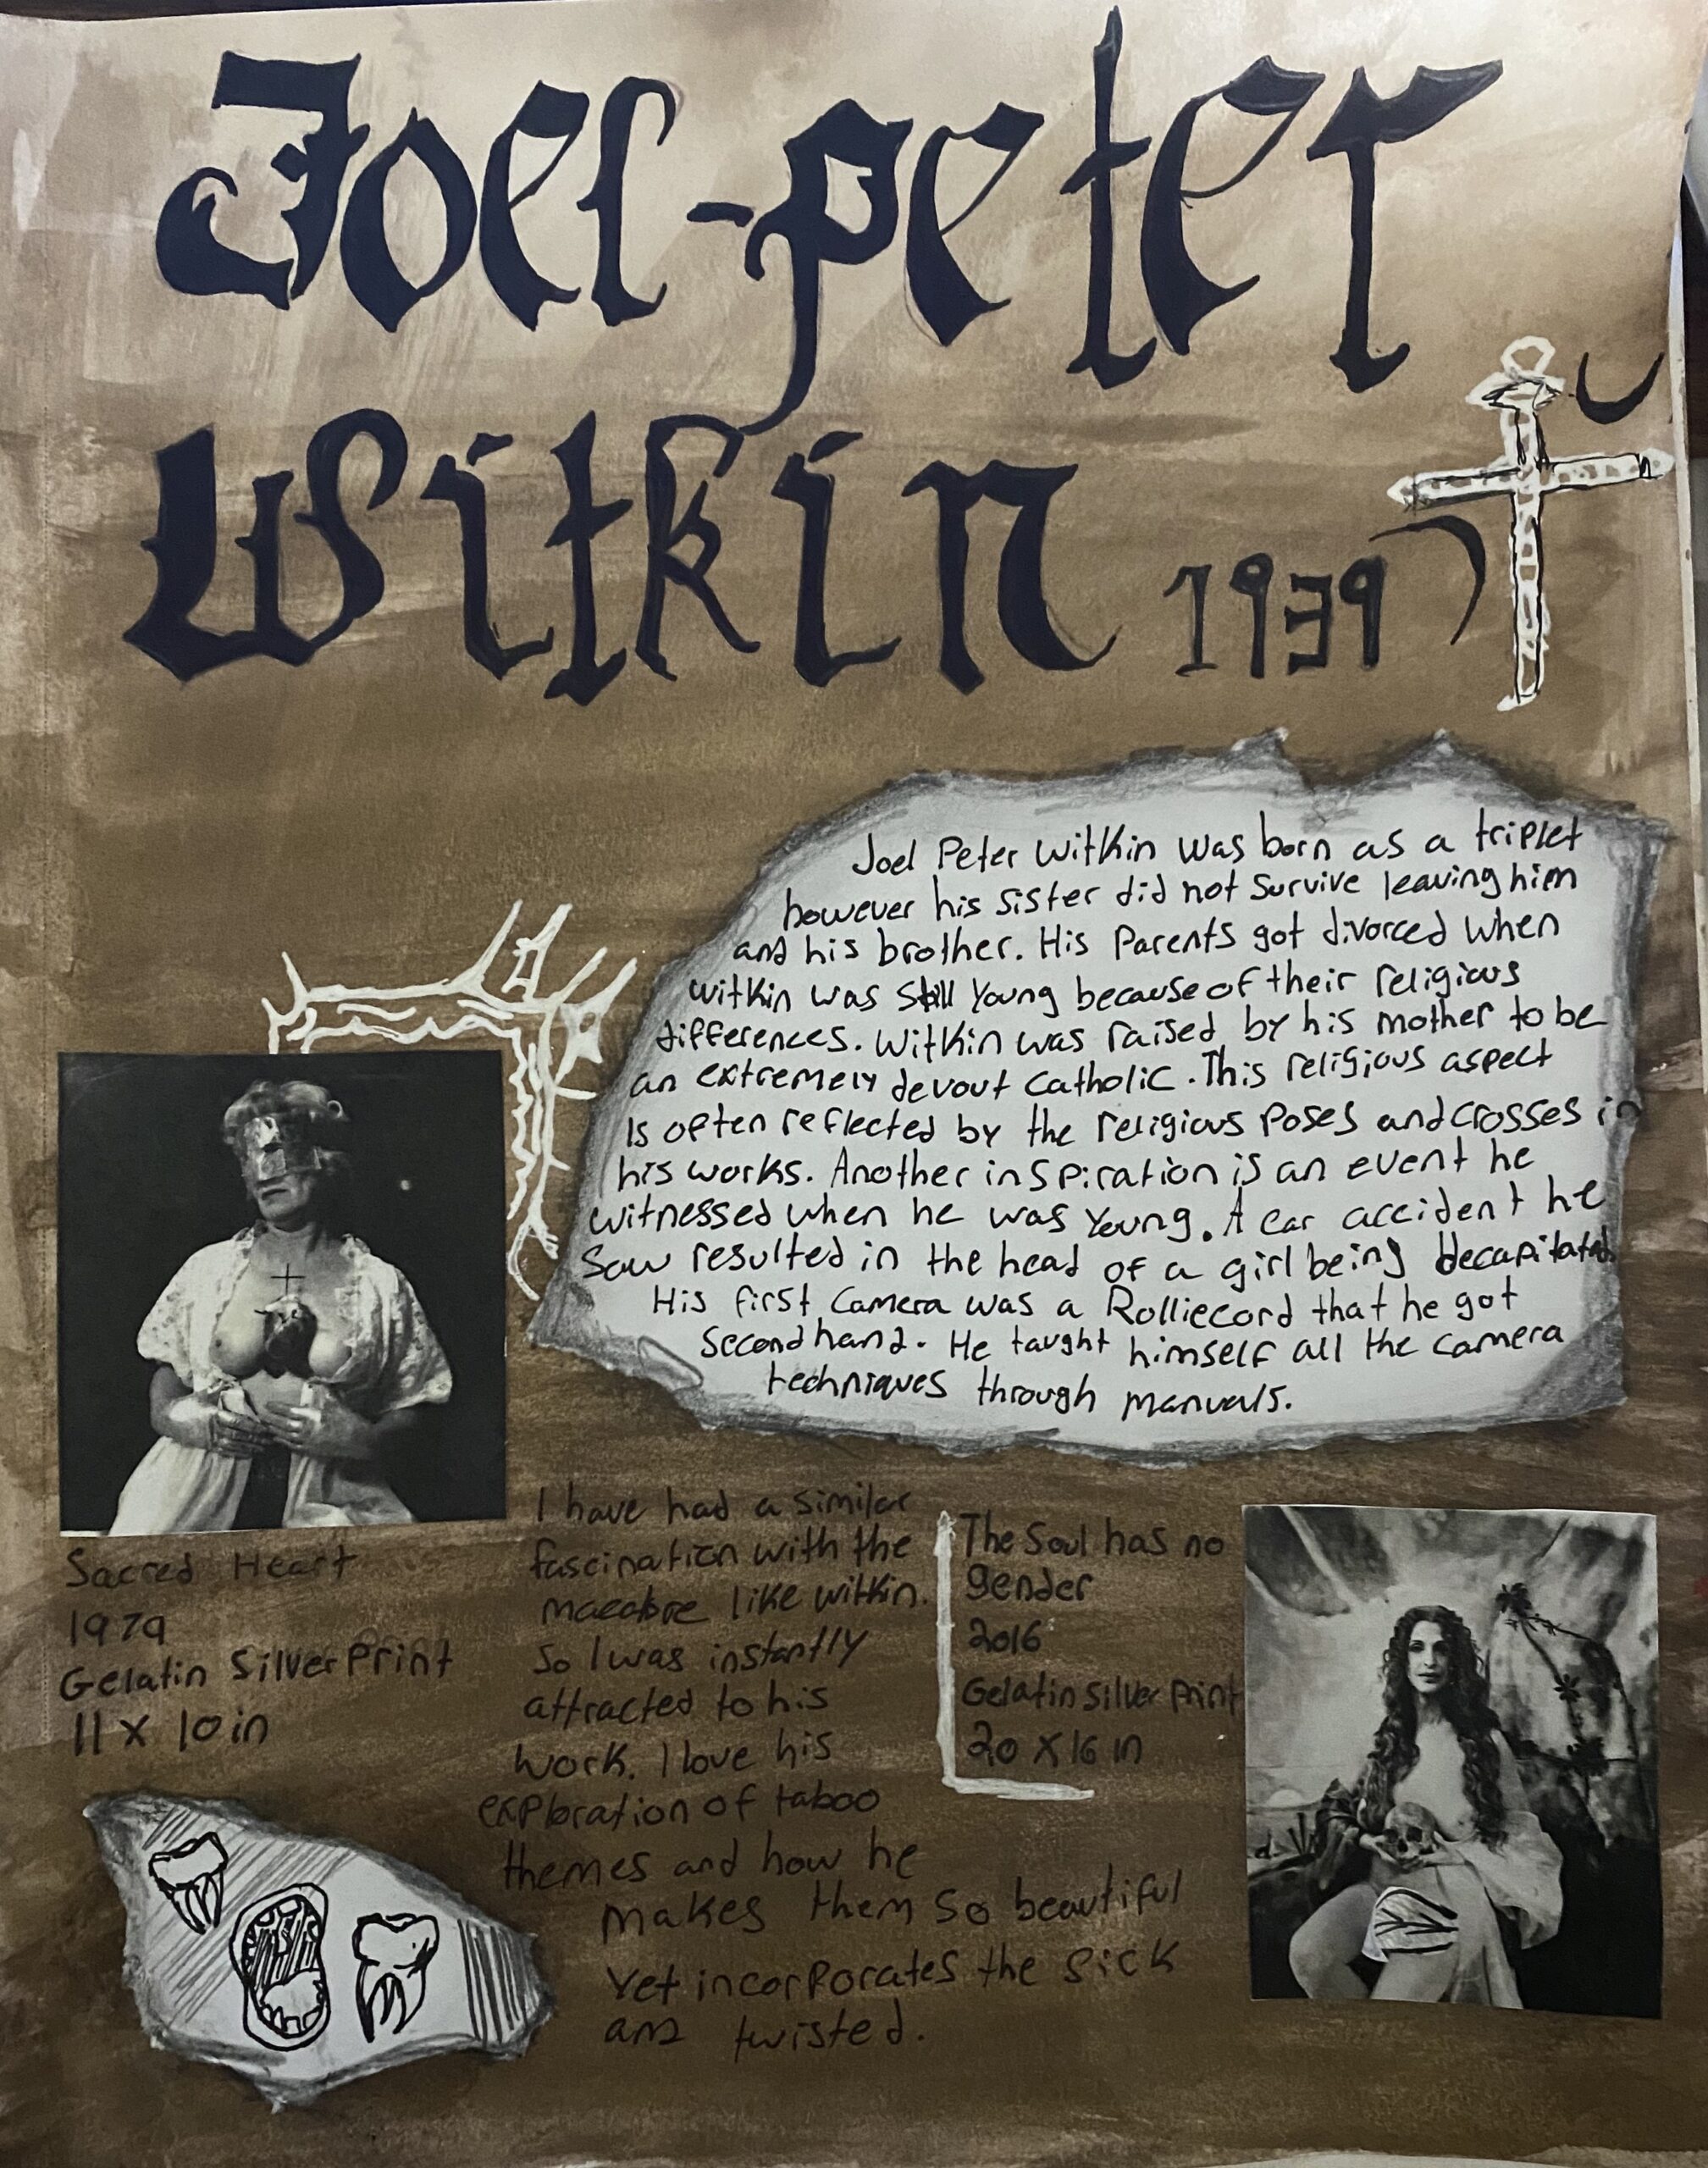 Joel-peter
Witkin 1939
Joel Peter Witkin was born as a triplet
however his sister did not survive leaving him
and his brother. His Parents got divorced when
witkin was still Young because of their religious
differences. Witkin was raised by his mother to be
an extremely devout Catholic. This religious aspect
Is often reflected by the religious Poses and crosses in
his works. Another inspiration is an event he
witnessed when he was Young. A car accident he
Saw resulted in the head of a girl being decapitated
His first Camera was a Rolliecord that he got
Secondhand. He taught himself all the camera
techniques through manuals.
Sacred Heart
1979
Gelatin Silver Print
11 x 10 in
I have had a similar
fascination with the
macabre like witkin.
So I was instantly
attracted to his
work. I love his
exploration of taboo
themes and how he
makes them so beautiful
Yet incorporates the sick
and twisted.
The Soul has no
gender
2016
Gelatin Silver Print
20 X 16 in